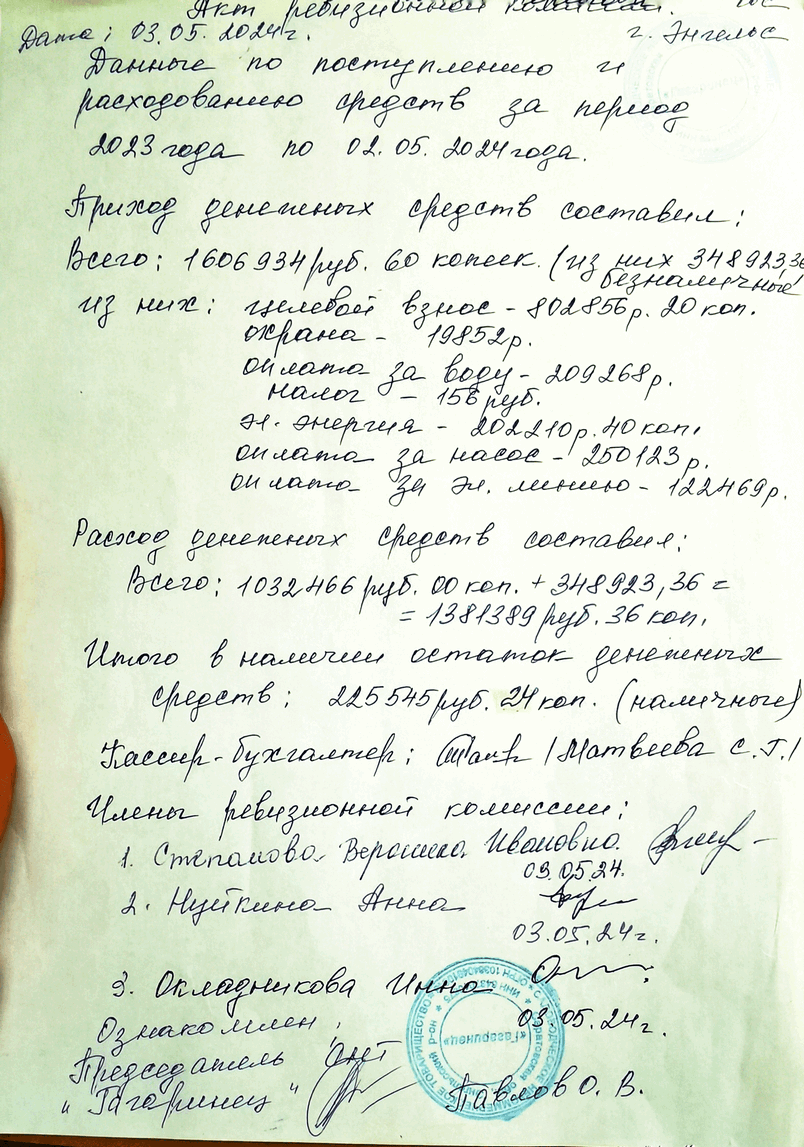 Акт ревизионной комиссии.
Дата: 03.05.2024г. г. Энгельс
Данные по поступлению и
расходованию средств за период
2023 года по 02.05.2024 года.
Приход денежных средств составил:
Всего: 1606934 руб. 60 копеек. (из них 348923,36
безналичные
из них: целевой взнос - 802856р. 20 коп.
охрана - 19852р.
оплата за воду - 209268р.
налог - 156 руб.
эл. энергия - 202210р. 40 коп.
оплата за насос - 250123р.
оплата за эл. линию - 122469р.
Расход денежных средств составил:
Всего: 1032466 руб. 00 коп. + 348923,36 =
= 1381389 руб. 36 коп.
Итого в наличии остаток денежных
средств: 225545 руб. 24 коп. (наличные)
Кассир-бухгалтер: /Матвеева С.Г./
Члены ревизионной комиссии:
1. Степанова Вероника Ивановна.
03.05.24.
2. Нуйкина Анна
03.05.24г.
3. Окладникова Инна
Ознакомлен: 03.05.24г.
Председатель
"Гагаринец" Павлов О. В.
«Гагаринец»